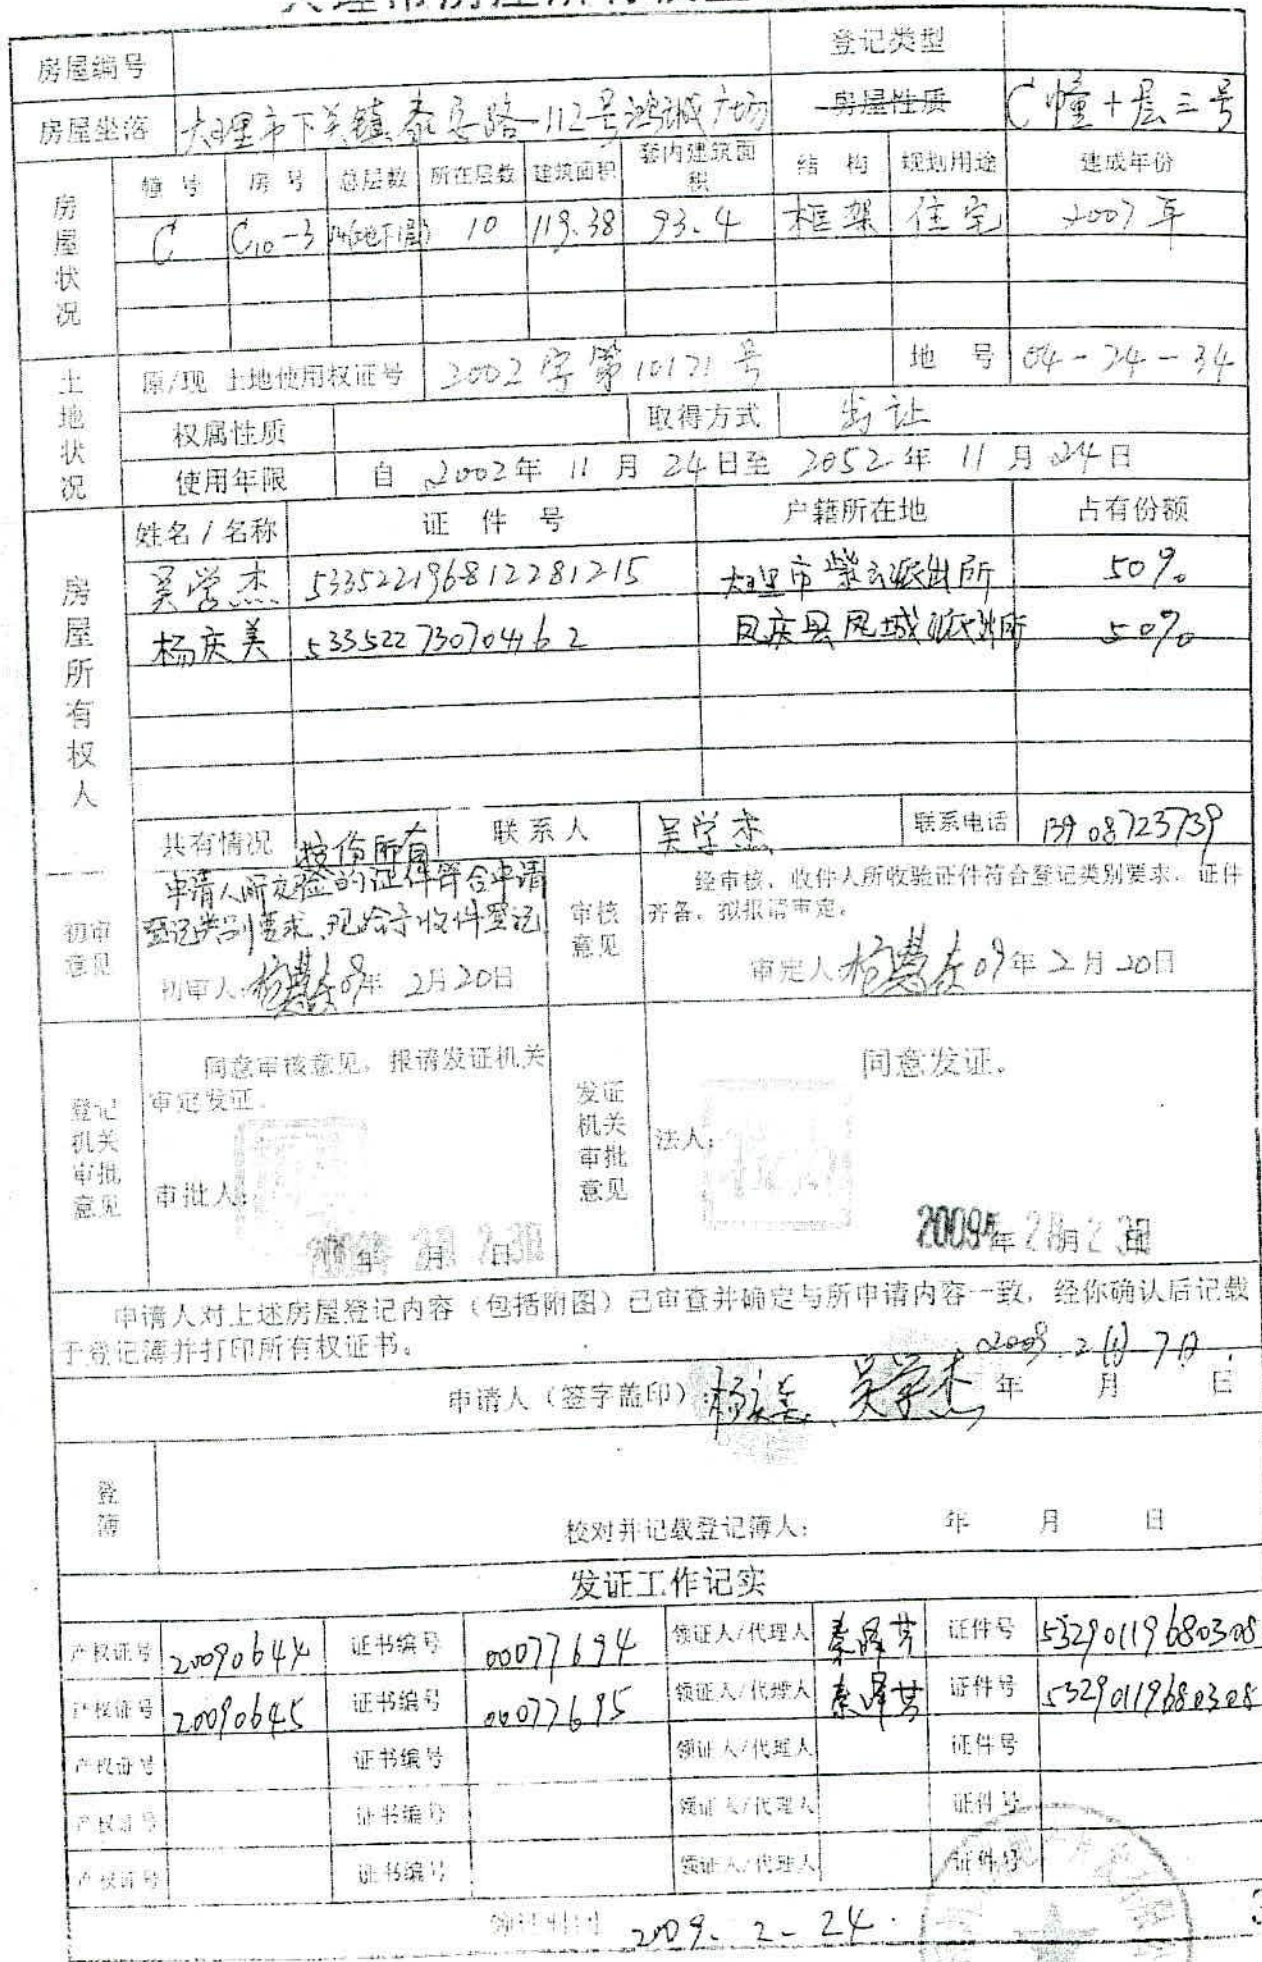 房屋编号 登记类型
房屋坐落 大理市下关镇泰安路112号鸿城广场 房屋性质 C幢十层三号
房屋状况
幢号 房号 总层数 所在层数 建筑面积 套内建筑面积 结构 规划用途 建成年份
C C10-3 14(地下1层) 10 119.38 93.4 框架 住宅 2007年
土地状况
原/现 土地使用权证号 2002字第10121号 地号 04-24-34
权属性质 取得方式 出让
使用年限 自 2002年 11月 24日至 2052年 11月 24日
房屋所有权人
姓名/名称 证件号 户籍所在地 占有份额
吴学杰 533522196812281215 大理市紫云派出所 50%
杨庆美 533522730704162 凤庆县凤城派出所 50%
共有情况 按份所有 联系人 吴学杰 联系电话 13908723739
初审意见
申请人所交验的证件符合申请
登记类别要求、现给予收件登记
初审人: 09年 2月20日
审核意见
经审核、收件人所收验证件符合登记类别要求、证件
齐备。拟报请审定。
审定人: 09年2月20日
登记机关审批意见
同意审核意见，报请发证机关
审定发证。
审批人:
年 月 日
发证机关审批意见
同意发证。
法人:
2009年2月23日
申请人对上述房屋登记内容（包括附图）已审查并确定与所申请内容一致，经你确认后记载
于登记簿并打印所有权证书。
2009.2月7日
申请人（签字盖印） 杨庆美、吴学杰 年 月 日
登簿
校对并记载登记簿人: 年 月 日
发证工作记实
产权证号 20090644 证书编号 00077694 领证人/代理人 证件号 53290119680308
产权证号 20090645 证书编号 00077695 领证人/代理人 证件号 53290119680308
产权证号 证书编号 领证人/代理人 证件号
产权证号 证书编号 领证人/代理人 证件号
产权证号 证书编号 领证人/代理人 证件号
领证时间 2009.2-24.